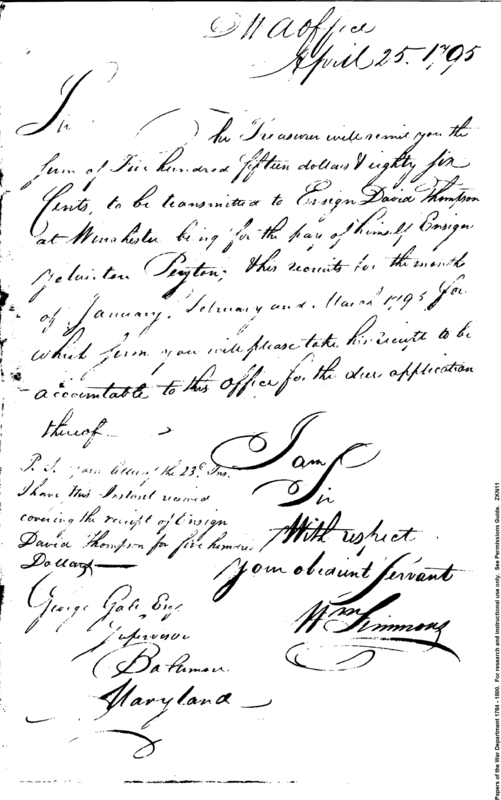 W A office
April 25. 1795
Sir
The Treasurer will remit you the
sum of Five hundred fifteen dollars & eighty six
Cents, to be transmitted to Ensign David Thompson
at Winchester being for the pay of himself Ensign
Yelverton Peyton; & his recruits for the months
of January, February and March 1795 for
which sum you will please take his receipt to be
accountable to this office for the due application
thereof
I am
Sir
With respect
Your obedient Servant
Wm Simmons
P. S. your letter of the 23d Ins.
I have this Instant received
covering the receipt of Ensign
David Thompson for five hundred
Dollars
George Gale Esq
Supervisor
Baltimore
Maryland
Papers of the War Department 1784 - 1800. For research and instructional use only. See Permissions Guide. ZXN11